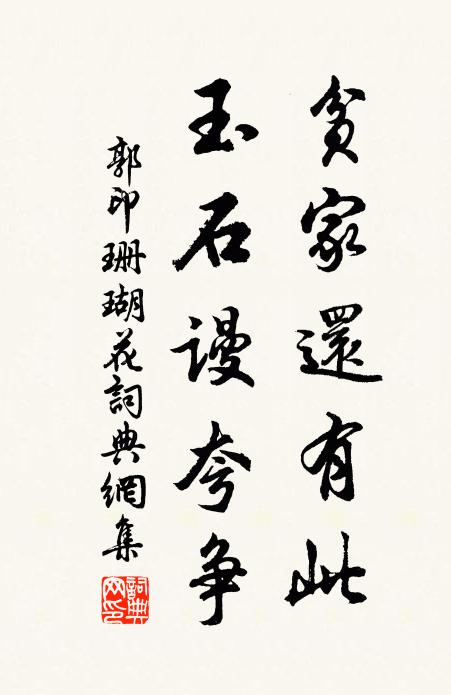 貧家還有此
玉石謾夸争
郭印珊瑚花詞典網集
詞典網印